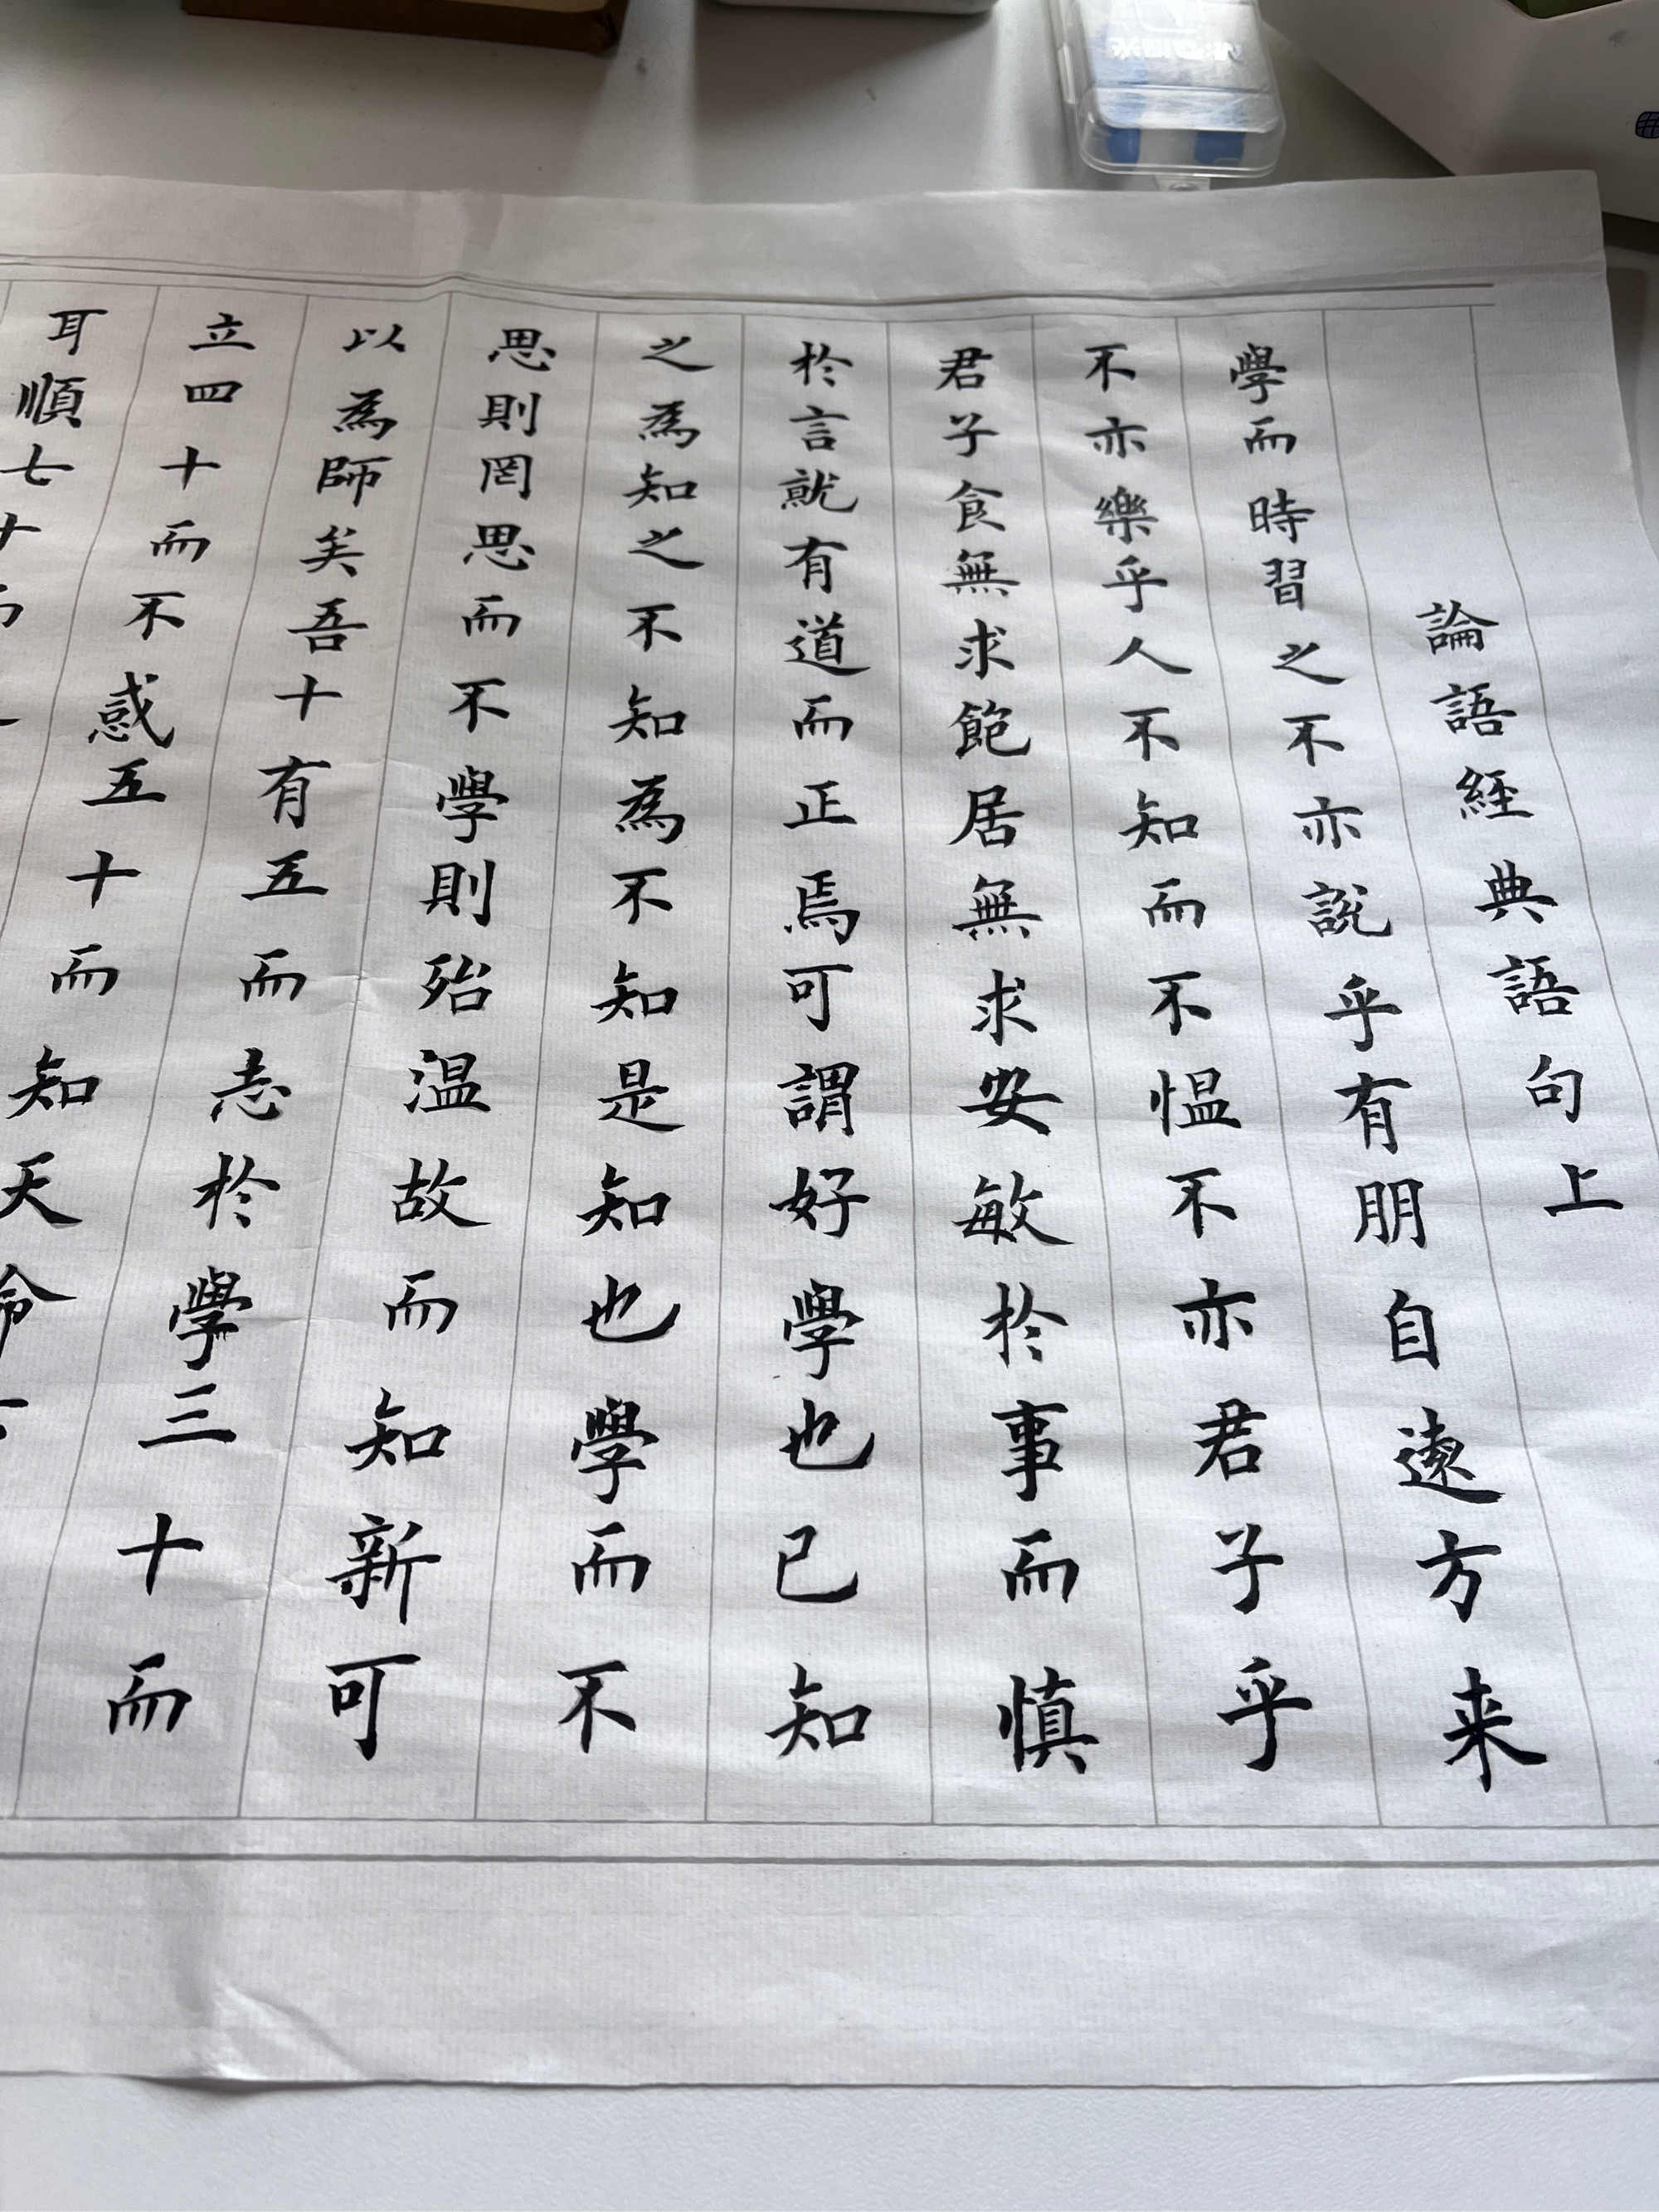 論語經典語句上
學而時習之不亦説乎有朋自遠方来
不亦樂乎人不知而不愠不亦君子乎
君子食無求飽居無求安敏於事而慎
於言就有道而正焉可謂好學也已知
之為知之不知為不知是知也學而不
思則罔思而不學則殆温故而知新可
以為師矣吾十有五而志於學三十而
立四十而不惑五十而知天命六
耳順七十而